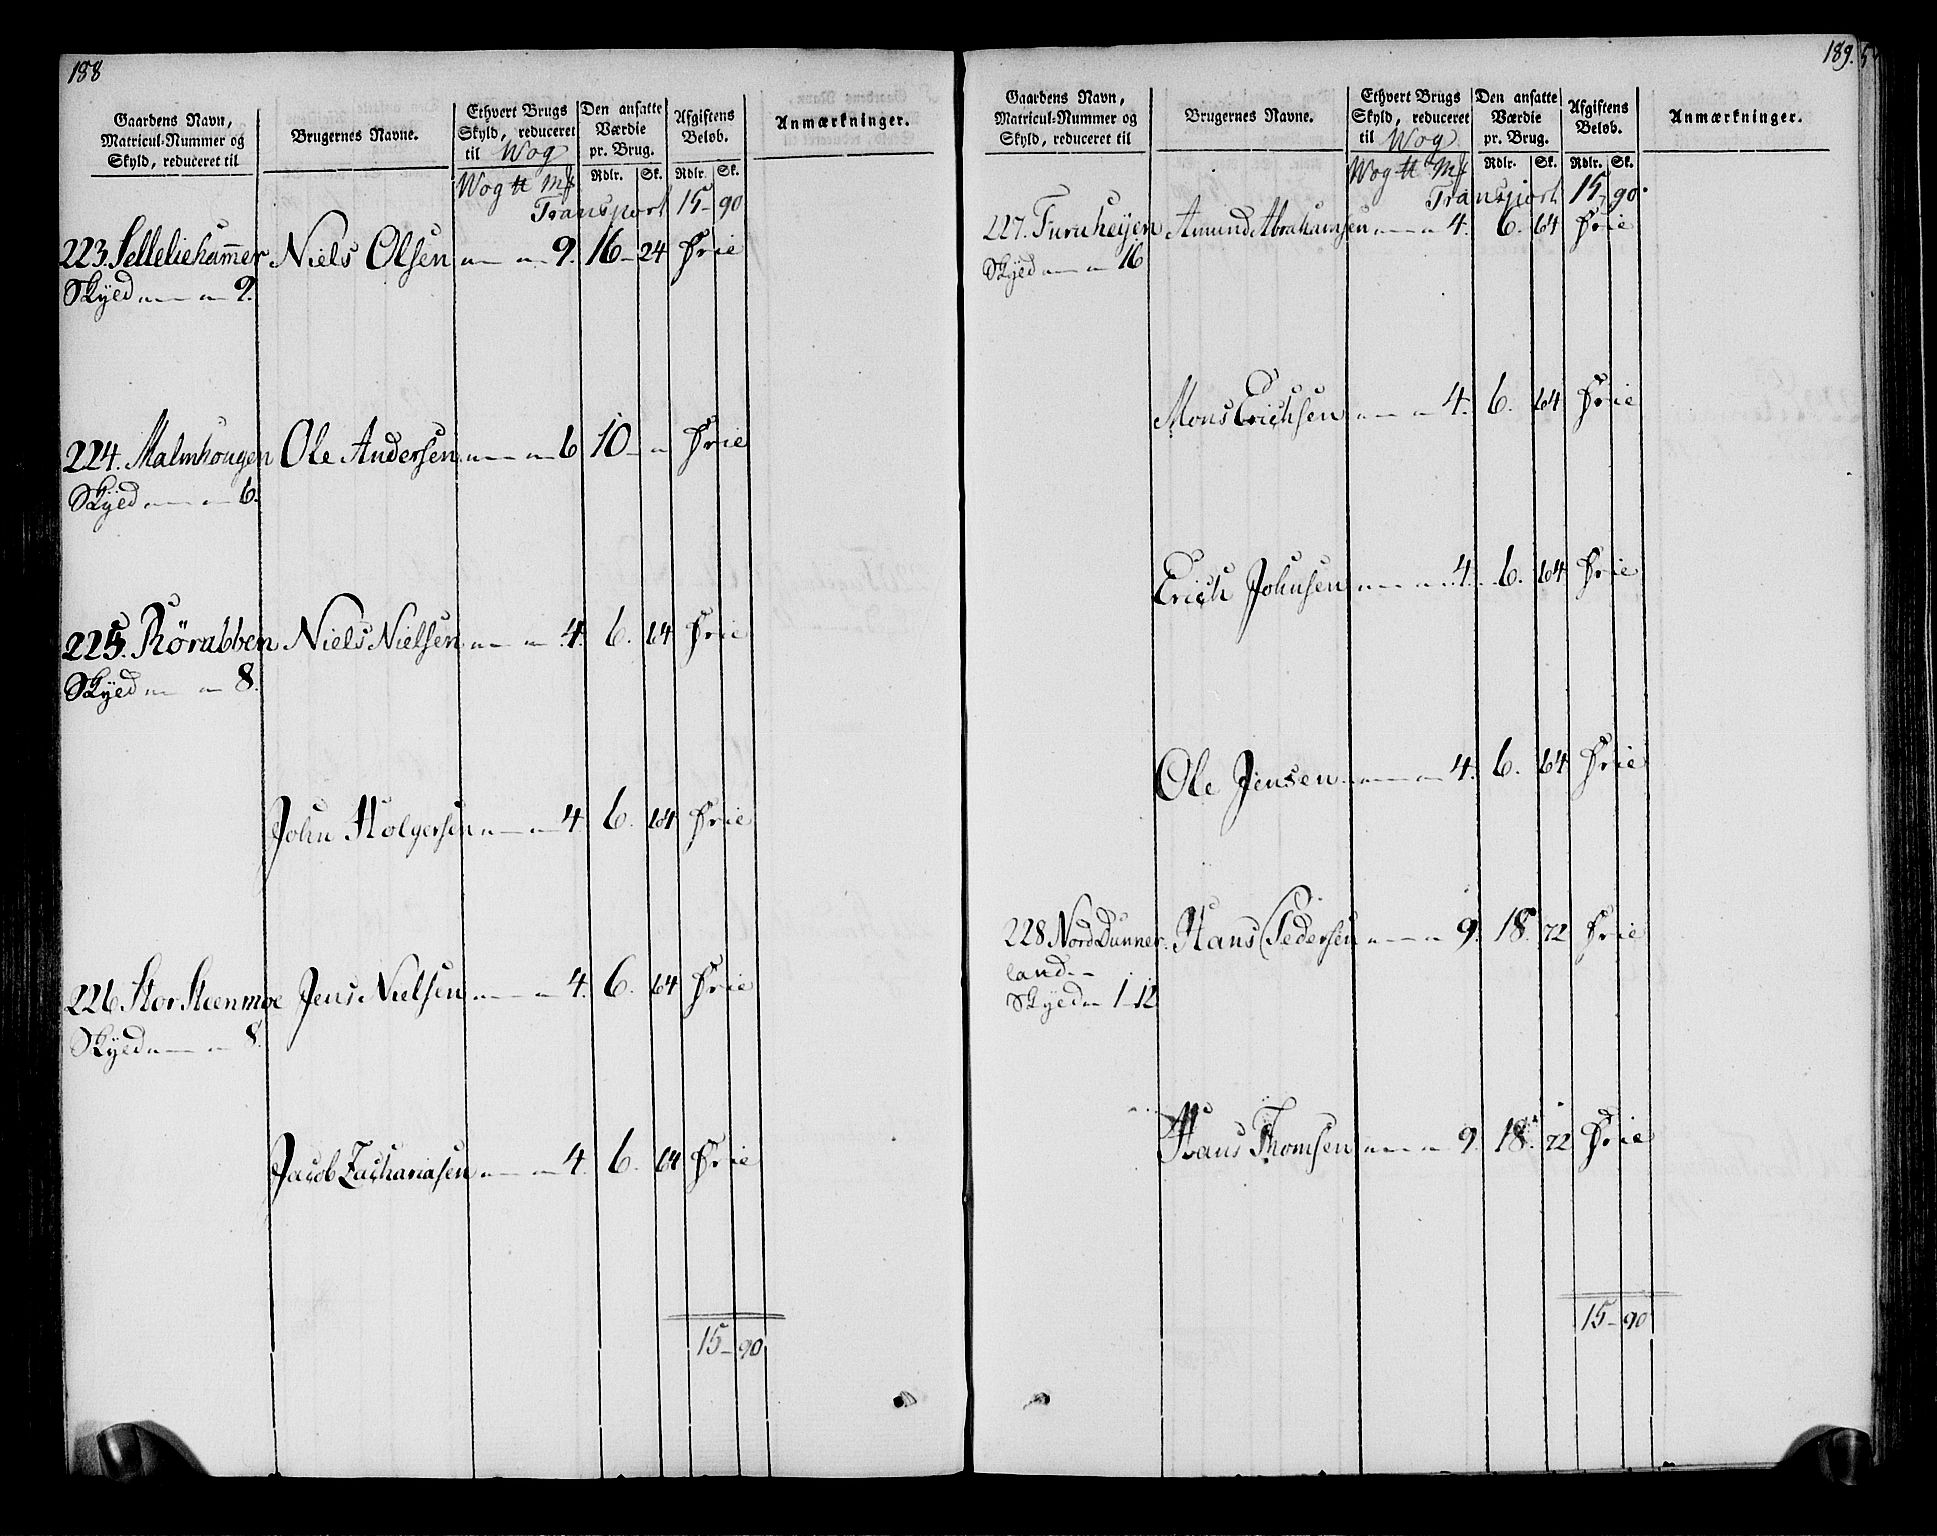 188
Gaardens Navn, Matricul-Nummer og Skyld, reduceret til
Brugernes Navne.
Ethvert Brugs Skyld, reduceret til Wog
Den ansatte Værdie pr. Brug.
Afgiftens Beløb.
Anmærkninger.
Wog ℔ Mk Rdlr. Sk. Rdlr. Sk.
Transport 15 - 90
223. Selleliehammer Niels Olsen 9. 16 - 24 Frie
Skyed 9.
224. Malmhougen Ole Andersen 6 10 - Frie
Skyed 6.
225. Rörabben Niels Nielsen 4. 6. 64 Frie
Skyed 8.
John Holgersen 4. 6. 64 Frie
226. Stor Steenmoe Jens Nielsen 4. 6. 64 Frie
Skyed 8.
Jacob Zachariasen 4. 6. 64 Frie
15 - 90
189.
Gaardens Navn, Matricul-Nummer og Skyld, reduceret til
Brugernes Navne.
Ethvert Brugs Skyld, reduceret til Wog
Den ansatte Værdie pr. Brug.
Afgiftens Beløb.
Anmærkninger.
Wog ℔ Mk Rdlr. Sk. Rdlr. Sk.
Transport 15 - 90.
227. Furuheÿen Amund Abrahamsen 4. 6. 64 Frie
Skÿed 16
Mons Erichsen 4. 6. 64 Frie
Erich Johnsen 4. 6. 64 Frie
Ole Jensen 4. 6. 64 Frie
228 Nord Dunner Hans Pedersen 9. 18. 72 Frie
land
Skyed 1 - 12
Hans Thomsen 9. 18. 72 Frie
15 - 90